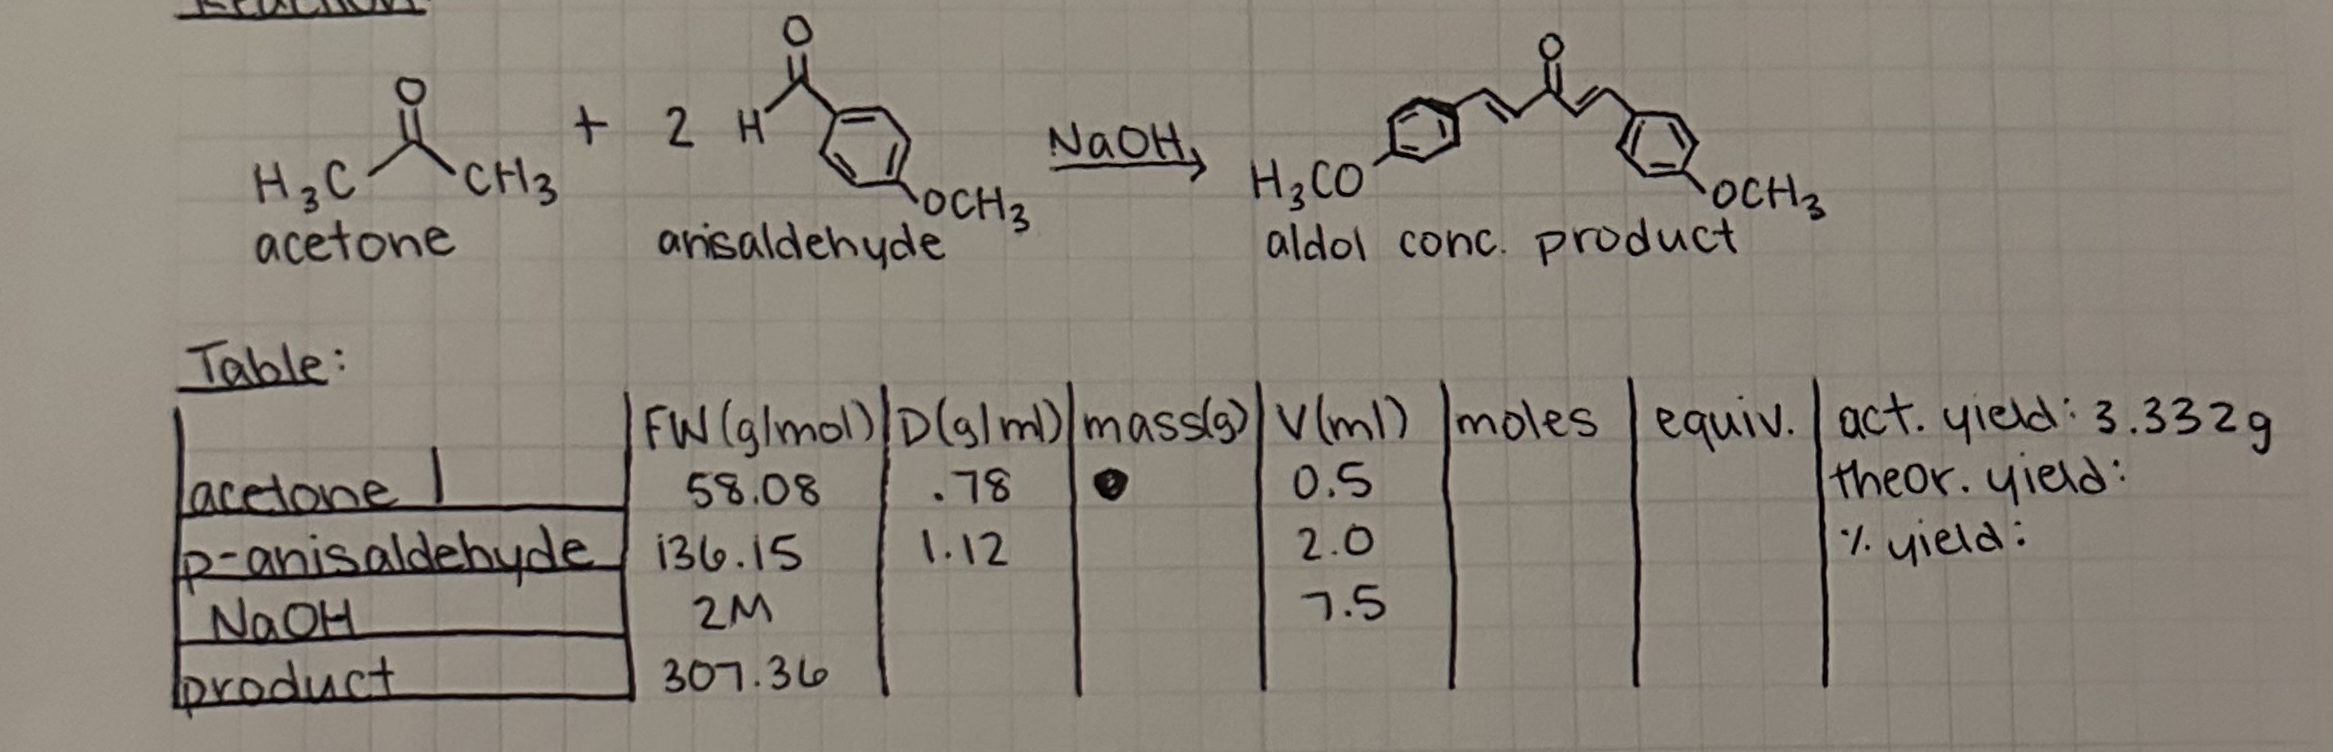 Reaction:
O
O
O
H₃C CH₃ + 2 H OCH₃ NaOH H₃CO OCH₃
acetone anisaldehyde aldol conc. product
Table:
FW (g/mol) D(g/ml) mass(g) V(ml) moles equiv. act. yield: 3.332g
acetone 58.08 .78 0.5 theor. yield:
p-anisaldehyde 136.15 1.12 2.0 % yield:
NaOH 2M 7.5
product 307.36